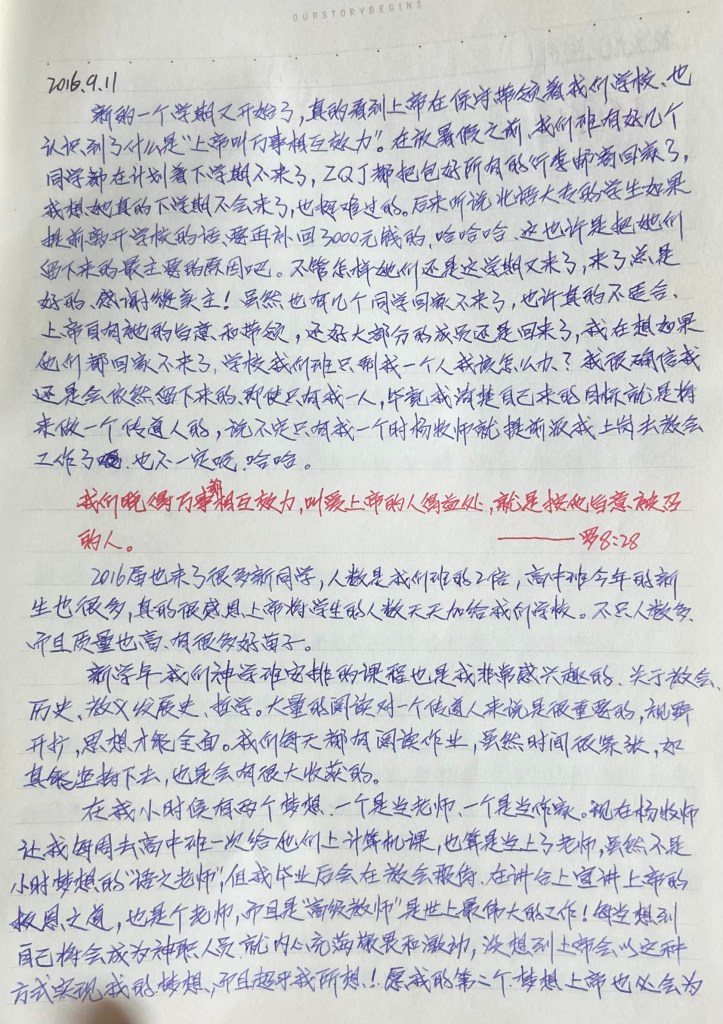 OURSTORYBEGINS
2016.9.11
新的一个学期又开始了,真的看到上帝在保守带领着我们学校、也
认识到了什么是“上帝叫万事相互效力”。在放暑假之前、我们班有好几个
同学都在计划着下学期不来了,ZQJ都把包好所有的行李邮寄回家了,
我想她真的下学期不会来了,也挺难过的。后来听说北语大专的学生如果
提前离开学校的话、要再补回3000元钱的,哈哈哈、这也许是把她们
留下来的最主要的原因吧。不管怎样她们还是这学期又来了,来了总是
好的、感谢赞美主!虽然也有几个同学回家不来了,也许真的不适合、
上帝自有祂的旨意和带领,还好大部分的成员还是回来了,我在想如果
他们都回家不来了,学校我们班只剩我一个人我该怎么办?我很确信我
还是会依然留下来的、即使只有我一人,毕竟我清楚自己来的目标就是将
来做一个传道人的,说不定只有我一个时杨牧师就提前派我上岗去教会
工作了 也不一定呢、哈哈。
我们晓得万事都相互效力,叫爱上帝的人得益处,就是按他旨意被召
的人。 ——罗8:28
2016届也来了很多新同学,人数是我们班的2倍,高中班今年的新
生也很多,真的很感恩上帝将学生的人数天天加给我们学校。不只人数多、
而且质量也高、有很多好苗子。
新学年我们神学班安排的课程也是我非常感兴趣的、关于教会、
历史、教义发展史、哲学。大量的阅读对一个传道人来说是很重要的,视野
开扩,思想才能全面。我们每天都有阅读作业,虽然时间很紧张,如
真能坚持下去,也是会有很大收获的。
在我小时候有两个梦想、一个是当老师、一个是当作家。现在杨牧师
让我每周去高中班一次给他们上计算机课,也算是当上了老师,虽然不是
小时梦想的“语文老师”,但我毕业后会在教会服侍、在讲台上宣讲上帝的
救恩之道,也是个老师,而且是“高级教师”是世上最伟大的工作!每当想到
自己将会成为神职人员就内心充满敬畏和激动,没想到上帝会以这种
方式实现我的梦想、而且超乎我所想!愿我的第二个梦想上帝也必会为